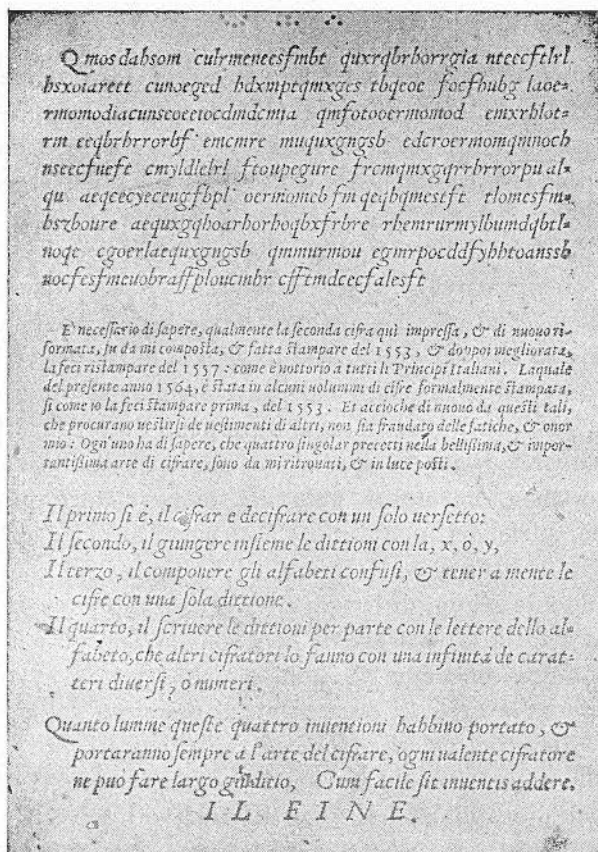 Qmos dabsom culrmeneesfmbt quxrqbrborrgia nteecftlrl
bsxoiarett cunoeged hdxmptqmxgcs tbqeoe focfhubg laoe=
rmomodiacunseoeeiocdmdcmia qmfotooermomod emxrblot=
rm eeqbrbrrorbf emcmre muquxgngsb edcroermomqmnocb
nseecfuefe cmyldlelrl ftoupegure frcmqmxgqrrbrrorpu al=
qu aeqcecyecengfbpl oermomcb fm qeqbqmcstft tlomesfm=
bszboure aequxgqhoarborboqbxfrbre rhemrurmylbumdqbtl=
noqe cgoerlaequxgngsb qmmurmou egmrpocddfybbtoanssb
nocfesfmeuobraffploucmbr cfftmdcecfalesft
E necessario di sapere, qualmente la seconda cifra quì impressa, & di nuouo ri=
formata, fu da mi composta, & fatta stampare del 1553, & doppoi megliorata,
la feci ristampare del 1557: come è nottorio a tutti li Principi Italiani. Laquale
del presente anno 1564, è stata in alcuni uolummi di cifre formalmente stampata,
si come io la feci stampare prima, del 1553. Et accioche di nuouo da questi tali,
che procurano uestirsi de uestimenti di altri, non sia fraudato delle fatiche, & onor
mio: Ogn'uno ha di sapere, che quattro singolar precetti nella bellissima, & impor=
tantissima arte di cifrare, sono da mi ritrouati, & in luce posti.
Il primo si è, il cifrar e decifrare con un solo uersetto:
Il secondo, il giungere insieme le dittioni con la, x, ò, y,
Il terzo, il componere gli alfabeti confusi, & tener a mente le
cifre con una sola dittione.
Il quarto, il scriuere le dittioni per parte con le lettere dello al=
fabeto, che altri cifratori lo fanno con una infinità de carat=
teri diuersi, ò numeri.
Quanto lumme queste quattro inuentioni habbino portato, &
portaranno sempre a l'arte del cifrare, ogni ualente cifratore
ne puo fare largo giuditio, Cum facile sit inuentis addere.
IL FINE.